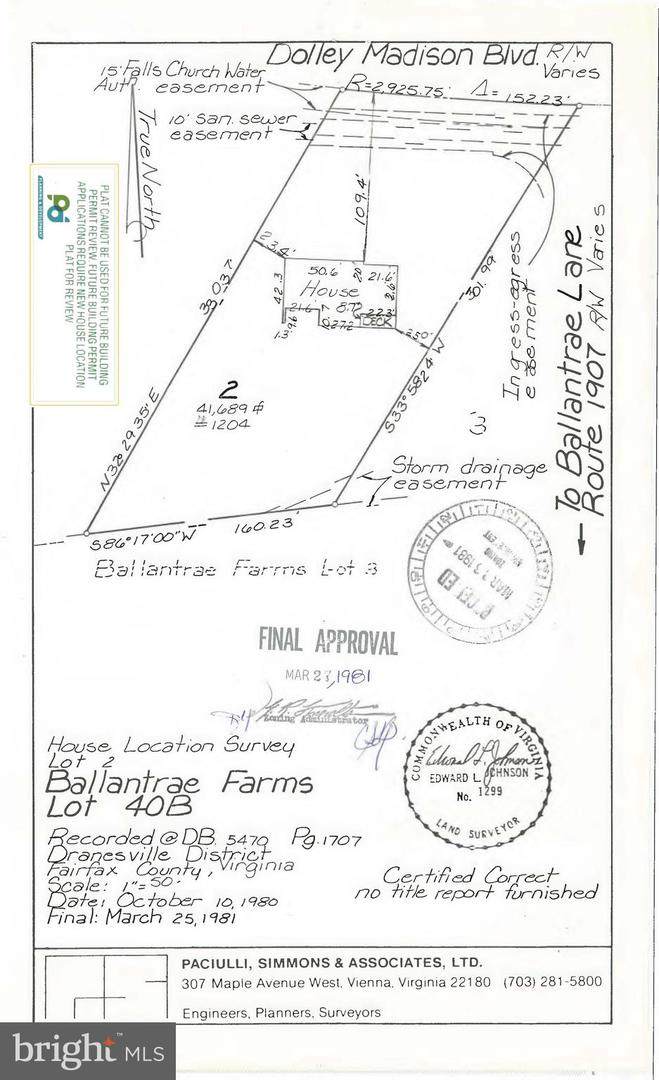 Dolley Madison Blvd. R/W
Varies
15' Falls Church Water
Auth. easement
R=2,925.75' Δ= 152.23'
10' San. sewer
easement
True North
PLAT CANNOT BE USED FOR FUTURE BUILDING
PERMIT REVIEW. FUTURE BUILDING PERMIT
APPLICATIONS REQUIRE NEW HOUSE LOCATION
PLAT FOR REVIEW
109.4'
50.6
21.6'
House
42.3
21.6
8.7
22.3'
DECK
1.3
9.6
27.2
25.0'
301.99
S33°58'24"W
Ingress-egress
easement
To Ballantrae Lane
Route 1907 R/W Varies
2
41,689
1204
3
N32°29'35"E
Storm drainage
easement
160.23'
S86°17'00"W
Ballantrae Farms Lot 3
FINAL APPROVAL
MAR 27, 1981
Zoning Administrator
House Location Survey
Lot 2
Ballantrae Farms
Lot 40B
Recorded @ DB. 5470 Pg. 1707
Dranesville District
Fairfax County, Virginia
Scale: 1"=50'
Date: October 10, 1980
Final: March 25, 1981
COMMONWEALTH OF VIRGINIA
Edward L. Johnson
EDWARD L. JOHNSON
No. 1299
LAND SURVEYOR
Certified Correct
no title report furnished
PACIULLI, SIMMONS & ASSOCIATES, LTD.
307 Maple Avenue West, Vienna, Virginia 22180 (703) 281-5800
Engineers, Planners, Surveyors
bright MLS